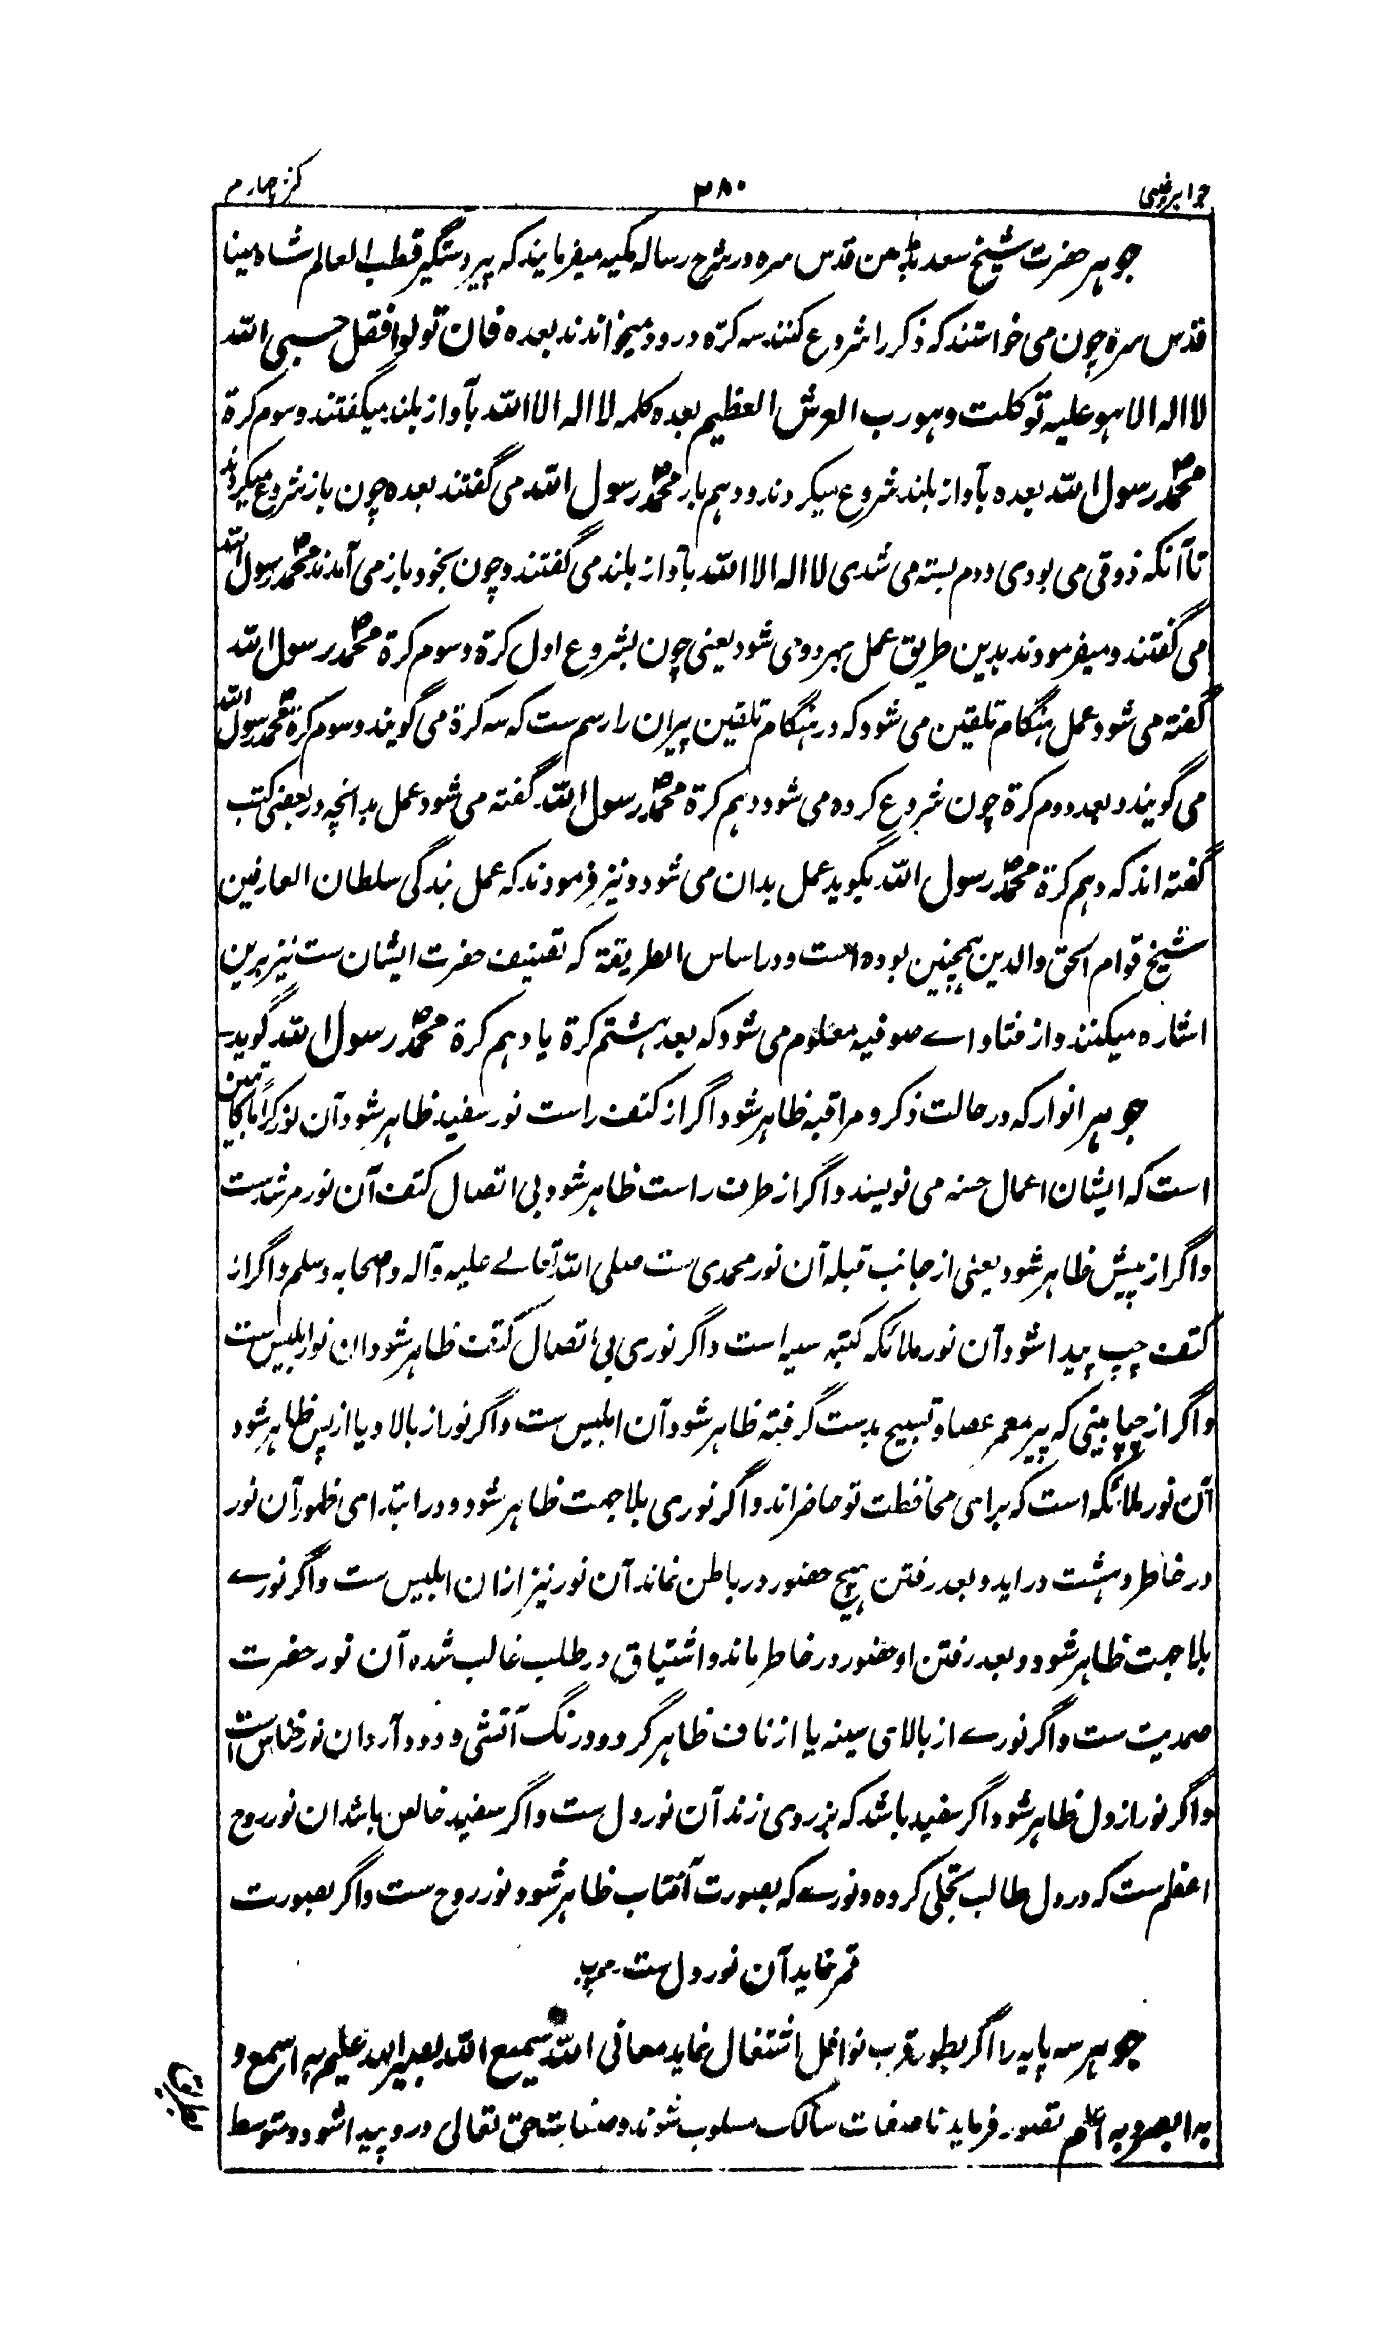 جواہر غیبی
۳۸۰
کنز چہارم
جوہر حضرت شیخ سعد بڈہن قدس سرہ در شرح رسالہ مکیہ میفرمایند کہ پیر دستگیر قطب العالم شاہ مینا
قدس سرہ چون می خواستند کہ ذکر را شروع کنند سہ کرّہ درود میخواندند بعدہ فان تولوا فقل حسبی اللہ
لا الہ الا ہو علیہ توکلت وہو رب العرش العظیم بعدہ کلمہ لا الہ الا اللہ بآواز بلند میگفتند و سوم کرۃ
محمد رسول اللہ بعدہ بآواز بلند شروع میکردند و دہم بار محمد رسول اللہ می گفتند بعدہ چون باز شروع میکردند
تا آنکہ ذوقی می بودی و دم بستہ می شدی لا الہ الا اللہ بآواز بلند می گفتند و چون بخود باز می آمدند محمد رسول اللہ
می گفتند و میفرمودند بدین طریق عمل بہر دو می شود یعنی چون بشروع اول کرۃ و سوم کرۃ محمد رسول اللہ
گفتہ می شود عمل ہنگام تلقین می شود کہ در ہنگام تلقین پیران را رسم ست کہ سہ کرۃ می گویند و سوم کرۃ محمد رسول اللہ
می گویند و بعد دوم کرۃ چون شروع کردہ می شود دہم کرۃ محمد رسول اللہ گفتہ می شود عمل بدانچہ در بعضی کتب
گفتہ اند کہ دہم کرۃ محمد رسول اللہ بگوید عمل بدان می شود و نیز فرمودند کہ عمل بندگی سلطان العارفین
شیخ قوام الحق والدین ہمچنین بودہ است و در اساس الطریقۃ کہ تصنیف حضرت ایشان ست نیز برین
اشارہ میکنند و از فتاواے صوفیہ معلوم می شود کہ بعد ہشتم کرۃ یا دہم کرۃ محمد رسول اللہ گوید
جوہر انوار کہ در حالت ذکر و مراقبہ ظاہر شود اگر از کتف راست نور سفید ظاہر شود آن نور کراماً کاتبین
است کہ ایشان اعمال حسنہ می نویسند و اگر از طرف راست ظاہر شود بی اتصال کتف آن نور مرشدست
و اگر از پیش ظاہر شود یعنی از جانب قبلہ آن نور محمدی ست صلی اللہ تعالے علیہ وآلہ واصحابہ وسلم و اگر از
کتف چپ پیدا شود آن نور ملائکہ کتبہ سیہ است و اگر نوری بی اتصال کتف ظاہر شود ان نور ابلیس ست
و اگر از چپ بینی کہ پیر معمر عصا و تسبیح بدست گرفتہ ظاہر شود آن ابلیس ست و اگر نور از بالا و یا از پس ظاہر شود
آن نور ملائکہ است کہ برای محافظت تو حاضر اند و اگر نوری بلا جہت ظاہر شود و در ابتدای ظہور آن نور
در خاطر دہشت دراید و بعد رفتن ہیچ حضور در باطن نماند آن نور نیز ازان ابلیس ست و اگر نورے
بلا جہت ظاہر شود و بعد رفتن او حضور در خاطر ماند و اشتیاق در طلب غالب شدہ آن نور حضرت
صمدیت ست و اگر نورے از بالای سینہ یا از ناف ظاہر گردد و رنگ آتشی و دود آرد ان نور خناس است
و اگر نور از دل ظاہر شود اگر سفید باشد کہ بزردی زند آن نور دل ست و اگر سفید خالص باشد ان نور روح
اعظم ست کہ در دل طالب تجلی کردہ و نورے کہ بصورت آفتاب ظاہر شود نور روح ست و اگر بصورت
قمر نماید آن نور دل ست
جوہر سہ پایہ را اگر بطور قرب نوافل اشتغال نماید معانی اللہ سمیع اللہ بصیر اللہ علیم بہ اسمع و
بہ ابصر و بہ اعلم تصور فرماید تا صفات سالک مسلوب شوند و صفات حق تعالی درو پیدا شود و متوسط
بطریق